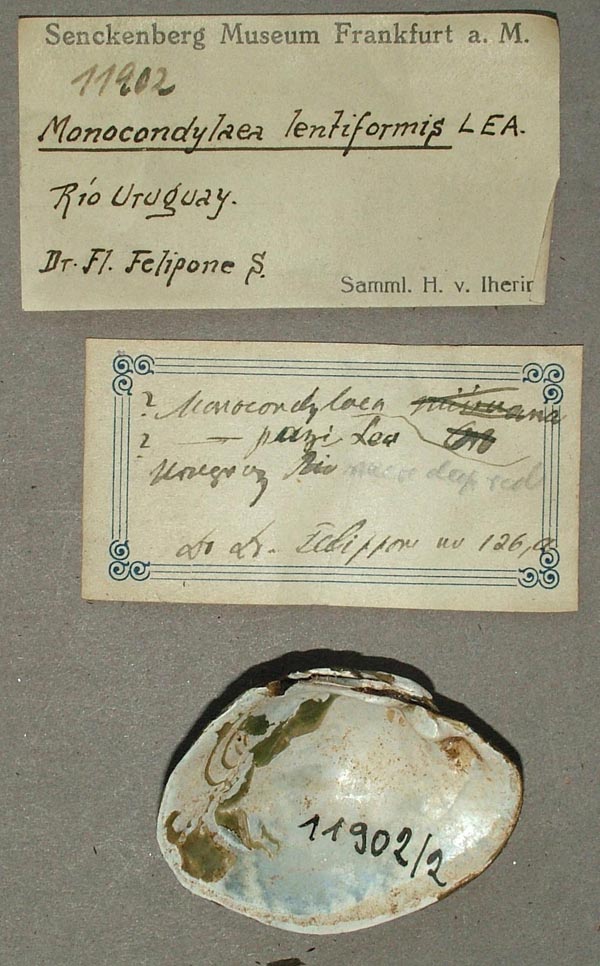 Senckenberg Museum Frankfurt a. M.
11902
Monocondylaea lentiformis LEA.
Río Uruguay.
Dr. Fl. Felipone S.
Samml. H. v. Iherin
? Monocondylaea
? — Lea
Rio
Dr. Felippone no 126,a
11902/2